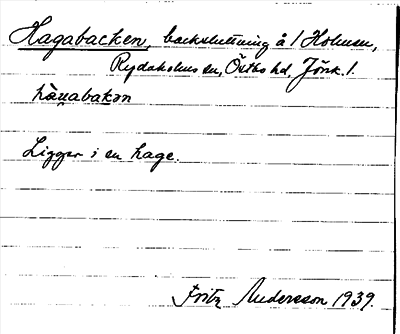 Hagabacken, backsluttning å 1 Holmen,
Rydaholms sn, Östbo hd. Jönk. l.
hàgabakən
Ligger i en hage.
Fritz Andersson 1939.